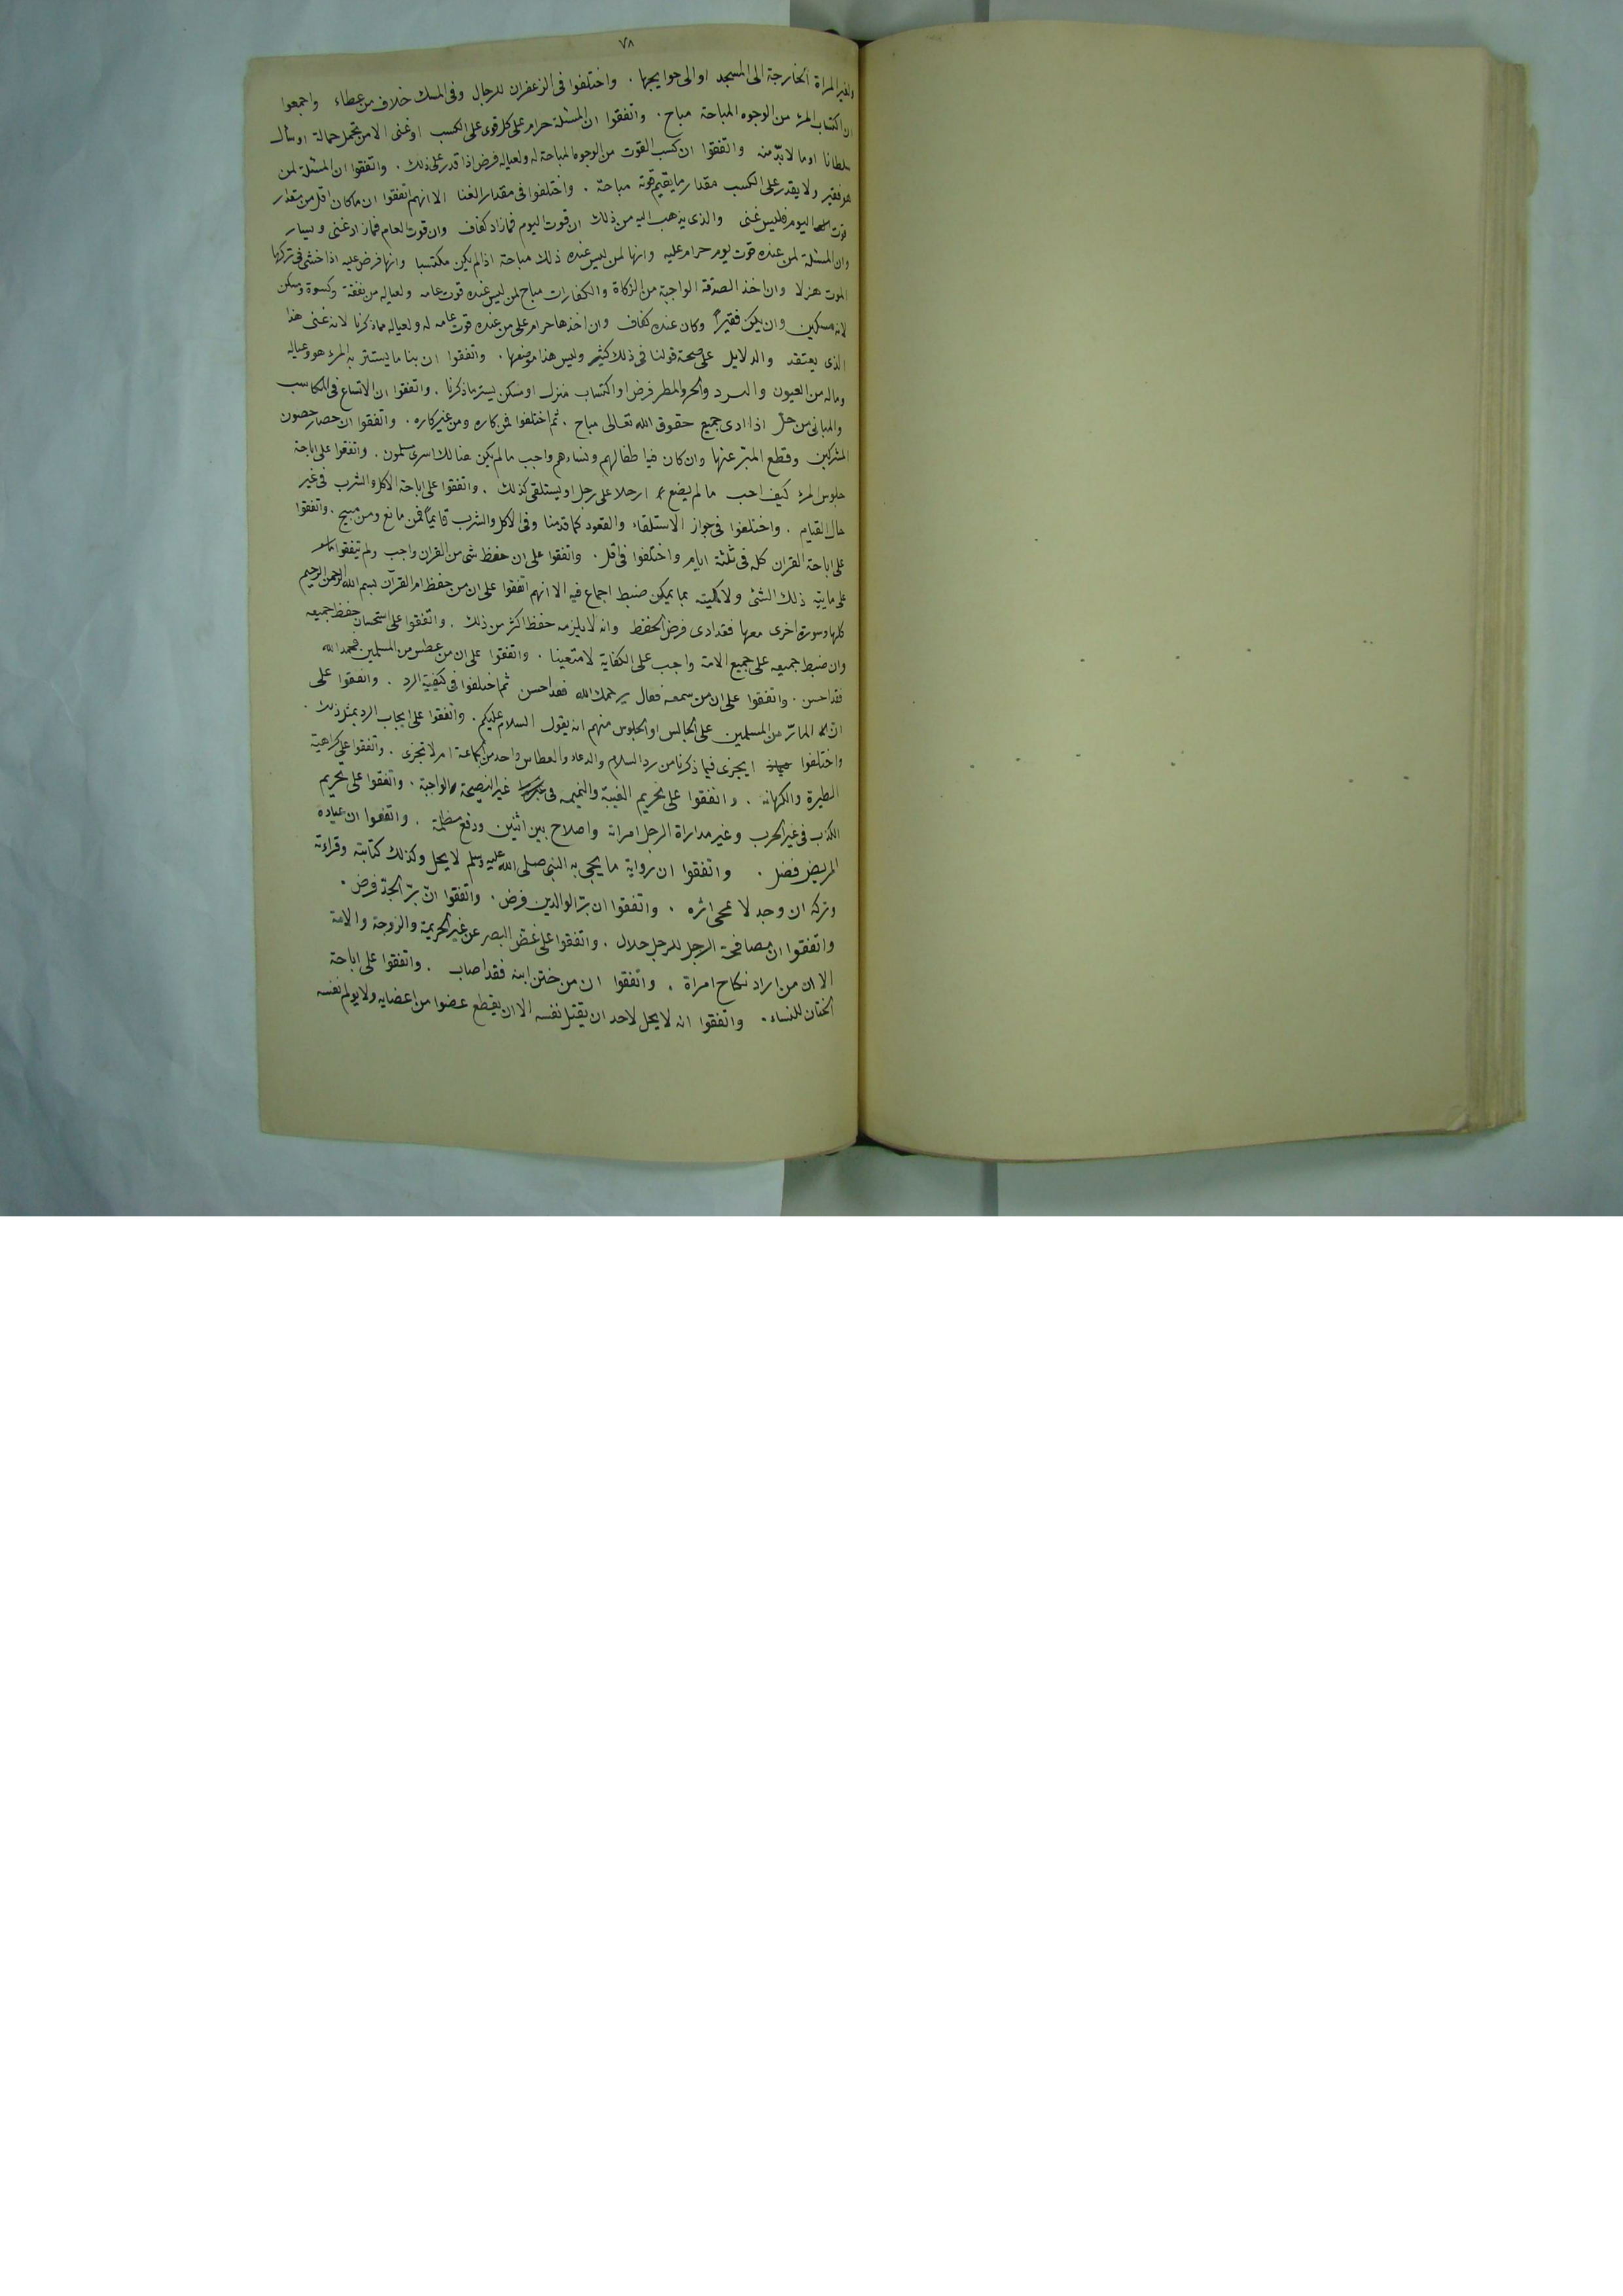 ٧٨
ولغير المراة الخارجة الى المسجد او الى حوايجها . واختلفوا فى الزعفران للرجال وفى المسك خلاف من عطاء واجمعوا
ان اكتساب المرء من الوجوه المباحة مباح . واتفقوا ان المسئلة حرام على كل قوى على الكسب او غنى الا من تحمل حمالة او سأل
سلطانا او ما لا بدّ منه واتفقوا ان كسب القوت من الوجوه المباحة له ولعياله فرض اذا قدر على ذلك . واتفقوا ان المسئلة لمن
هو فقير ولا يقدر على الكسب مقدار ما يقيم قوته مباحة . واختلفوا فى مقدار الغنا الا انهم اتفقوا ان ما كان اقل من مقدار
قوت اليوم فليس غنى والذى يذهب اليه من ذلك ان قوت اليوم فما زاد كفاف وان قوت العام فما زاد غنى ويسار
وان المسئلة لمن عنده قوت يوم حرام عليه وانها لمن ليس عنده ذلك مباحة اذا لم يكن مكتسبا وانها فرض عليه اذا خشى فى تركها
الموت هزلا وان اخذ الصدقة الواجبة من الزكاة والكفارات مباح لمن ليس عنده قوت عامه ولعياله من نفقة وكسوة وسكن
لانه مسكين وان يكن فقيراً وكان عنده كفاف وان اخذها حرام على من عنده قوت عامه له ولعياله مما ذكرنا لانه غنى هذا
الذى يعتقد والدلايل على صحة قولنا فى ذلك كثير وليس هذا موضعها . واتفقوا ان بنا ما يستتر به المرء هو وعياله
وماله من العيون والبرد والحر والمطر فرض او اكتساب منزل او مسكن يستر ما ذكرنا . واتفقوا ان الاتساع فى المكاسب
والمبانى من حل اذا ادى جميع حقوق الله تعالى مباح . ثم اختلفوا فمن كاره ومن غير كاره . واتفقوا ان حصار حصون
المشركين وقطع المير عنها وان كان فيها اطفالهم ونساءهم واجب ما لم يكن هنالك اسرى مسلمون . واتفقوا على اباحة
جلوس المرء كيف احب ما لم يضع رجلا على رجل او يستلقى كذلك . واتفقوا على اباحة الاكل والشرب فى غير
حال القيام . واختلفوا فى جواز الاستلقاء والقعود كما قدمنا وفى الاكل والشرب قايماً فمن مانع ومن مبيح . واتفقوا
على اباحة القران كله فى ثلثة ايام واختلفوا فى اقل . واتفقوا على ان حفظ شى من القران واجب ولم يتفقوا
على مايتيه ذلك الشئ ولا كميته بما يمكن ضبط اجماع فيه الا انهم اتفقوا على ان من حفظ ام القرآن ببسم الله الرحمن الرحيم
كلها وسورة اخرى معها فقد ادى فرض الحفظ وانه لا يلزمه حفظ اكثر من ذلك . واتفقوا على استحسان حفظ جميعه
وان ضبط جميعه على جميع الامة واجب على الكفاية لا متعينا . واتفقوا على ان من عطس من المسلمين فحمد الله
فقد احسن . واتفقوا على ان من سمعه فقال يرحمك الله فقد احسن ثم اختلفوا فى كيفية الرد . واتفقوا على
ان المارّ من المسلمين على الجالس او الجلوس منهم انه يقول السلام عليكم . واتفقوا على ايجاب الرد بمثل ذلك .
واختلفوا ايجزى فيما ذكرنا من رد السلام والدعاء والعطاس واحد من الجماعة ام لا تجزى . واتفقوا على كراهية
الطيرة والكهانة . واتفقوا على تحريم الغيبة والنميمه فى غير النصيحة الواجبة . واتفقوا على تحريم
الكذب فى غير الحرب وغير مداراة الرجل امراته واصلاح بين اثنين ودفع مظلمة . واتفقوا ان عيادة
المريض فضل . واتفقوا ان رواية ما يحجى به النبى صلى الله عليه وسلم لا يحل وكذلك كتابته وقراءته
وتركه ان وجد لا يمحى اثره . واتفقوا ان برّ الوالدين فرض . واتفقوا انّ برّ الجدّ فرض .
واتفقوا ان مصافحة الرجل للرجل حلال . واتفقوا على غض البصر عن غير الحريمة والزوجة والامة
الا ان من اراد نكاح امراة . واتفقوا ان من ختن ابنه فقد اصاب . واتفقوا على اباحة
الختان للنساء . واتفقوا انه لا يحل لاحد ان يقتل نفسه الا ان يقطع عضوا من اعضايه ولا يولم نفسه